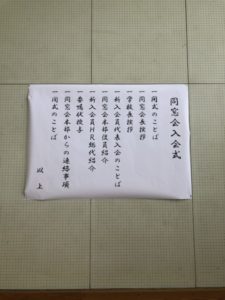 同窓会入会式
一開式のことば
一同窓会長挨拶
一学校長挨拶
一新入会員代表入会のことば
一同窓会本部役員紹介
一新入会員HR総代紹介
一委嘱状授与
一同窓会本部からの連絡事項
一閉式のことば
以上